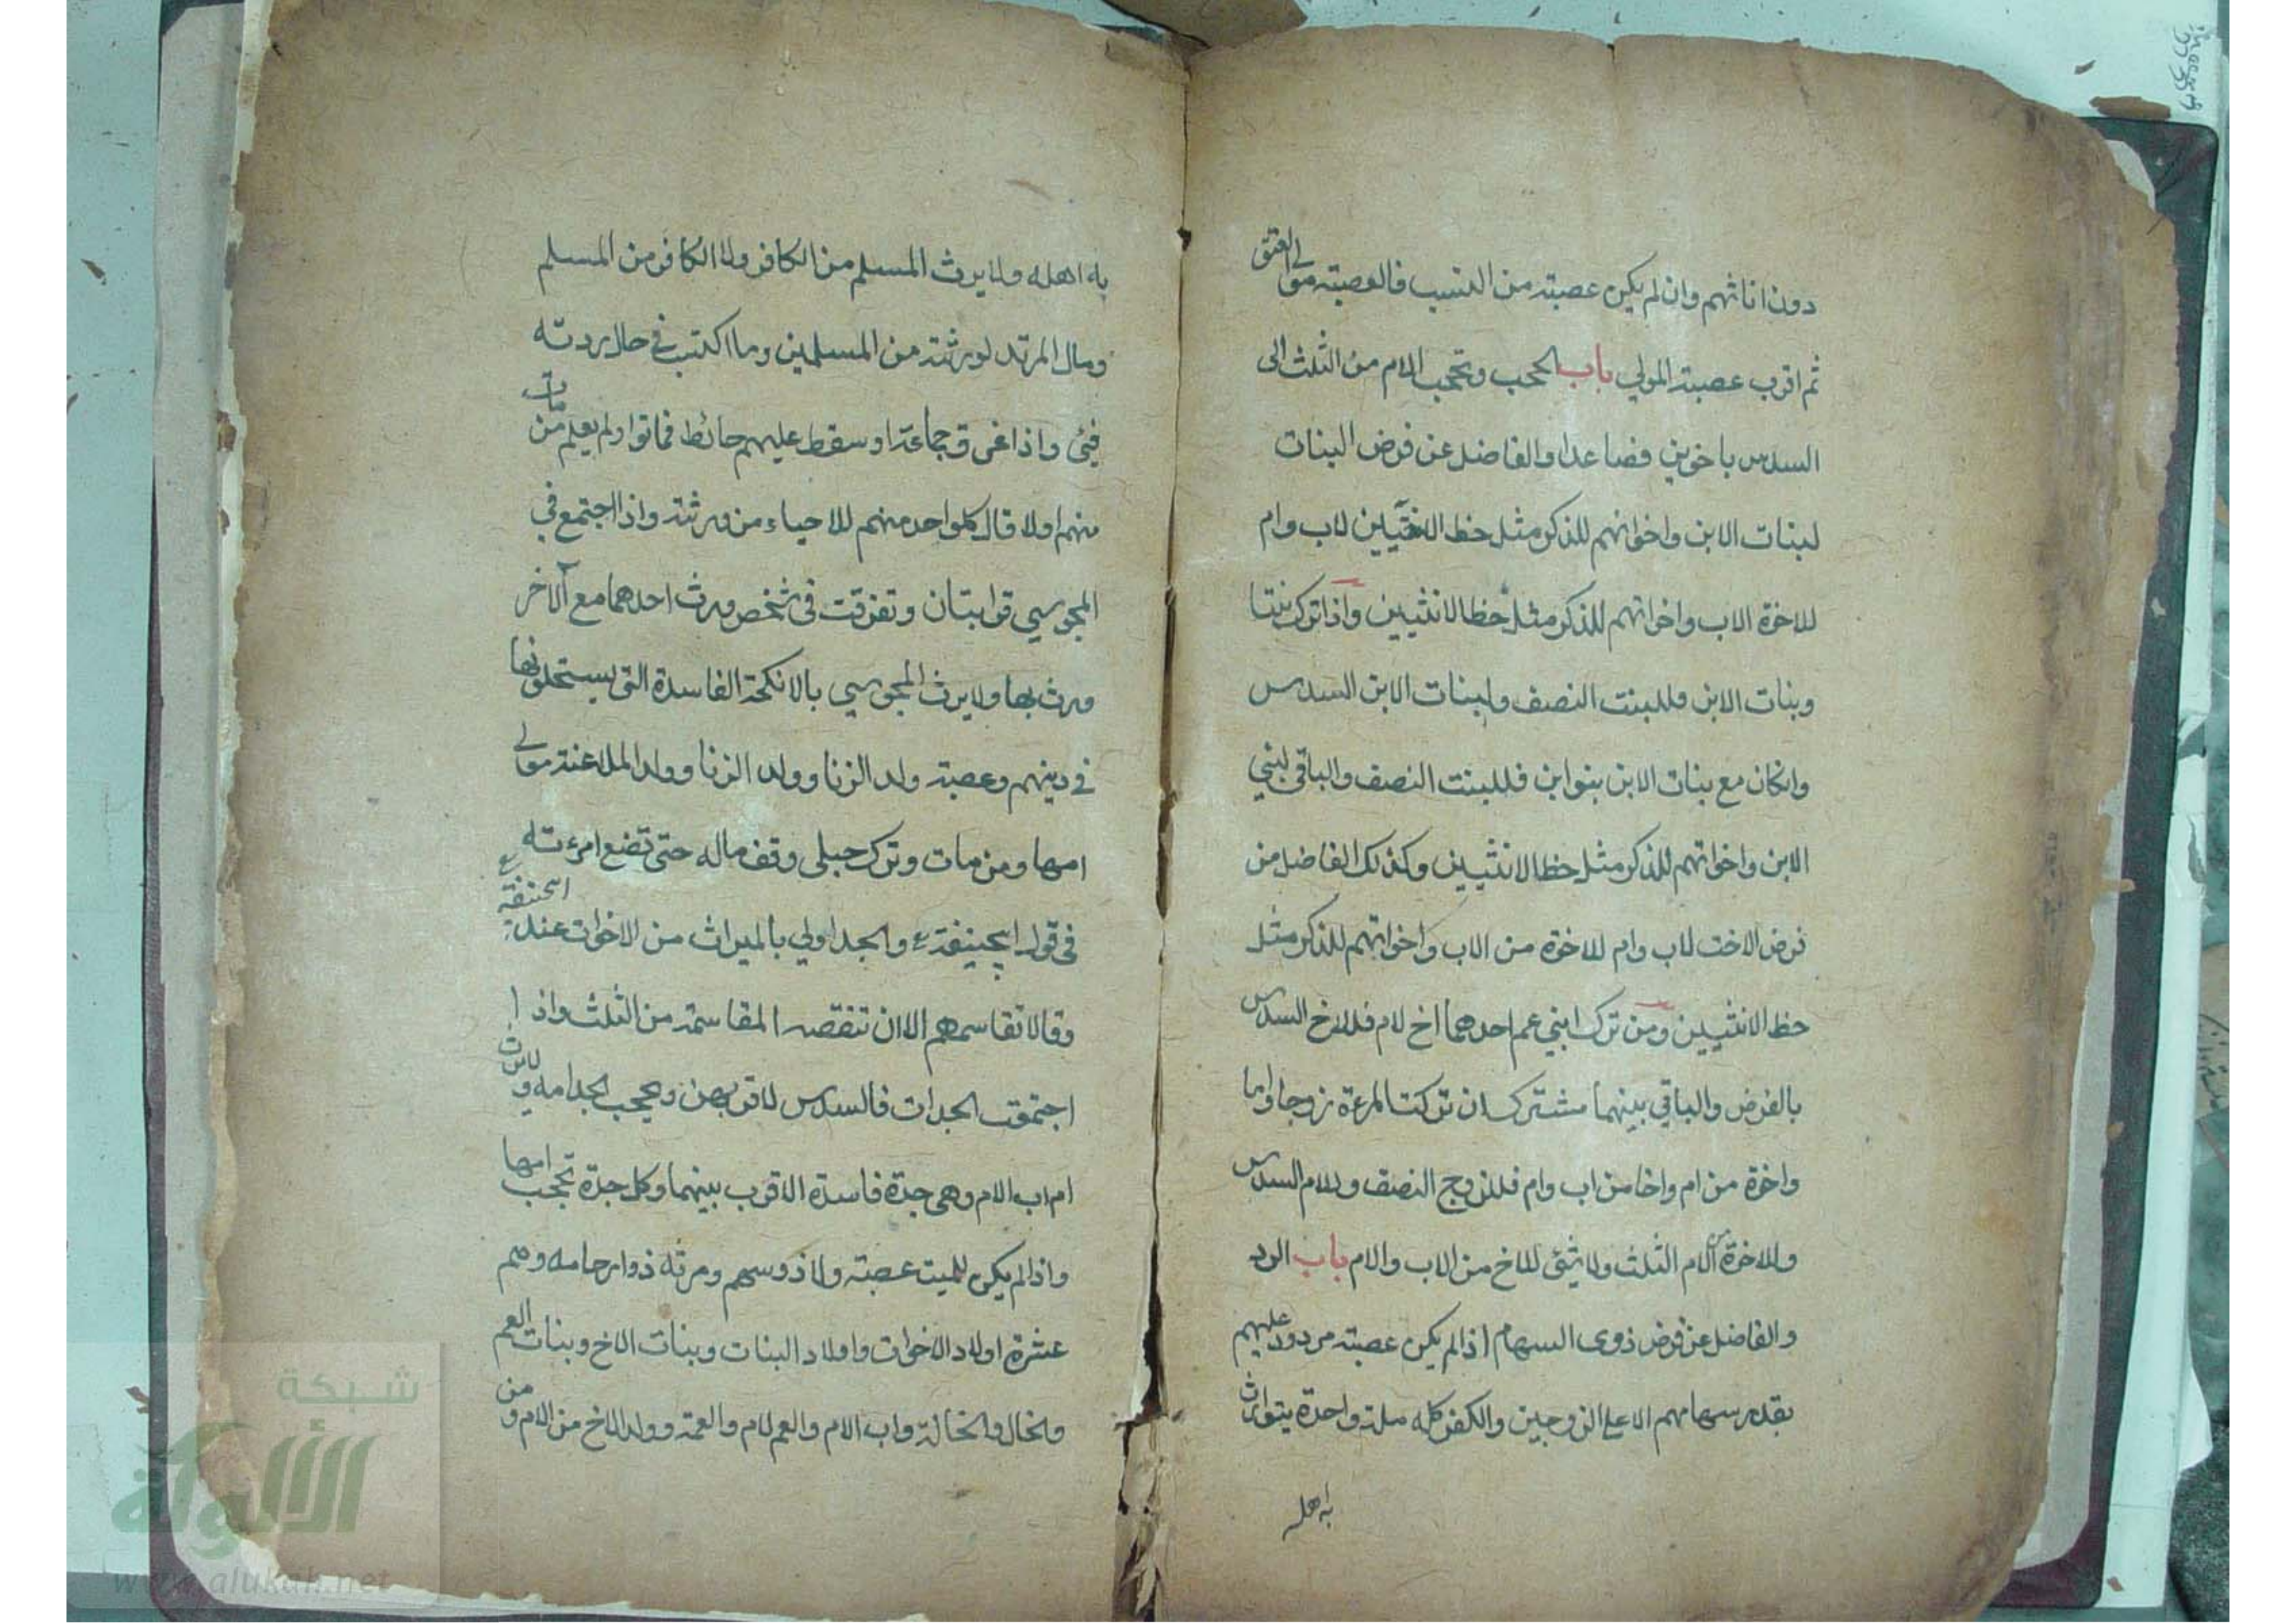 دون اناثهم وان لم يكن عصبته من النسب فالعصبته مولى العتق
ثم اقرب عصبته المولي باب الحجب وتحجب الام من الثلث الى
السدس باخوين فصاعدا والفاضل عن فرض البنات
لبنات الابن واخوانهم للذكر مثل حظ الانثيين لاب وام
للاخوة الاب واخواتهم للذكر مثل حظ الانثيين واذا ترك بنتا
وبنات الابن فللبنت النصف ولبنات الابن السدس
وانكان مع بنات الابن بنوابن فللبنت النصف والباقي لبني
الابن واخواتهم للذكر مثل حظ الانثيين وكذلك الفاضل من
فرض الاخت لاب وام للاخوة من الاب واخواتهم للذكر مثل
حظ الانثيين ومن ترك ابني عم احدهما اخ لام فللاخ السدس
بالفرض والباقي بينهما مشتركان تركت المرءة زوجا واما
واخوة من ام واخا من اب وام فللزوج النصف وللام السدس
وللاخوة من الام الثلث ولا شئ للاخ من الاب والام باب الرد
والفاضل عن فرض ذوى السهام اذا لم يكن عصبته مردود عليهم
بقدر سهامهم الا على الزوجين والكفر كله ملة واحدة يتوارث
به اهله
به اهله ولا يرث المسلم من الكافر ولا الكافر من المسلم
ومال المرتد لورثته من المسلمين وما اكتب في حال ردته
فيئ واذا غرق جماعة او سقط عليهم حائط فماتوا ولم يعلم من مات
منهم اولا فال كلواحد منهم للاحياء من ورثته واذا اجتمع في
المجوسي قرابتان وتفرقت فى شخص ورث احدهما مع الآخر
ورث بها ولا يرث المجوسي بالانكحة الفاسدة التى يستحلونها
في دينهم وعصبته ولد الزنا وولد الزنا وولد الملاعنة مولى
امها ومن مات وترك حبلى وقف ماله حتى تضع امرءته
فى قول ابيحنيفة ع والجد اولي بالميراث من الاخوات عند ابيحنيفة ع
وقالا تقاسمهم الا ان تنقصه المقاسمة من الثلث واذا
اجتمعت الجدات فالسدس لاقربهن ويحجب الجد امه ولا يرث
ام اب الام وهى جدة فاسدة الاقرب بينهما وكل جدة تحجب امها
واذا لم يكن للميت عصبته ولا ذوسهم ورثه ذوارحامه وهم
عشرة اولاد الاخوات واولاد البنات وبنات الاخ وبنات العم
والخال والخالة واب الام والعم لام والعمة وولد الاخ من الام ومن
شبكة
الألوكة
www.alukah.net